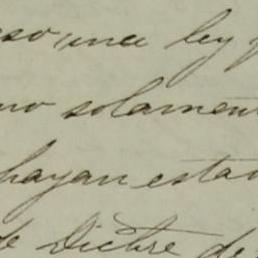 eso, una ley
no solament
hayan esta
de Dictre de